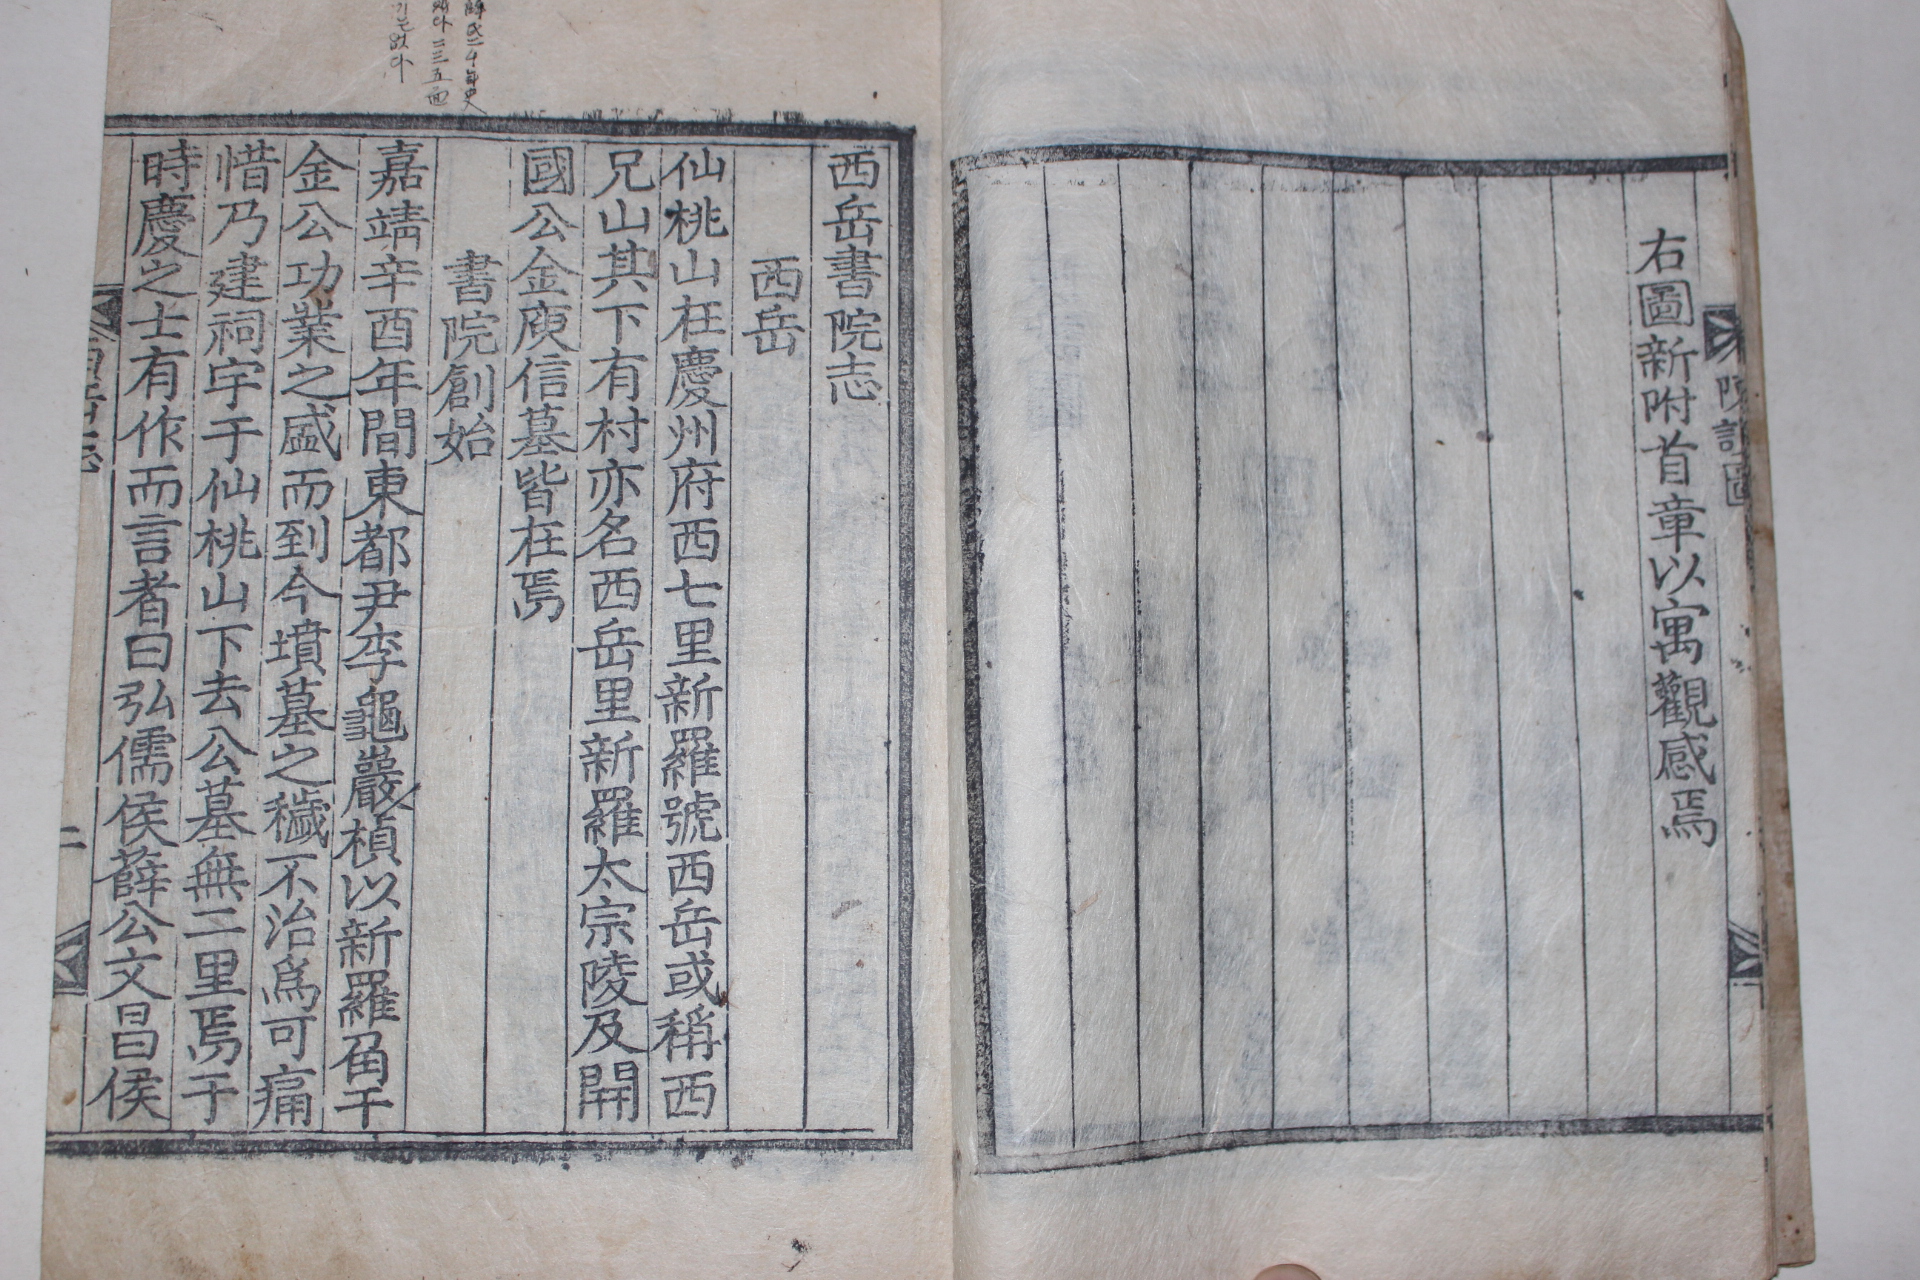 右圖新附首章以寓觀感焉
院誌圖
西岳書院志
西岳
仙桃山在慶州府西七里新羅號西岳或稱西
兄山其下有村亦名西岳里新羅太宗陵及開
國公金庾信墓皆在焉
書院創始
嘉靖辛酉年間東都尹李龜巖楨以新羅角干
金公功業之盛而到今墳墓之穢不治爲可痛
惜乃建祠宇于仙桃山下去公墓無二里焉于
時慶之士有作而言者曰弘儒侯薛公文昌侯
二